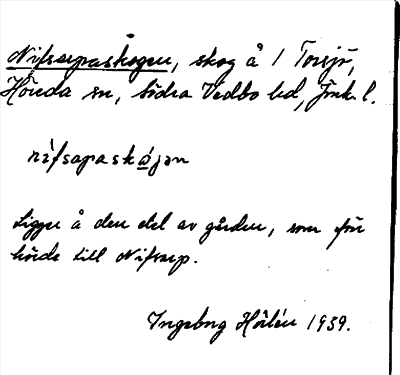 Nifsarpaskogen, skog å 1 Torsjö,
Höreda sn, Södra Vedbo hd, Jönk. l.
nifsapaskå̱jən
Ligger å den del av gården, som för
hörde till Nifsarp.
Ingeborg Hörlén 1939.